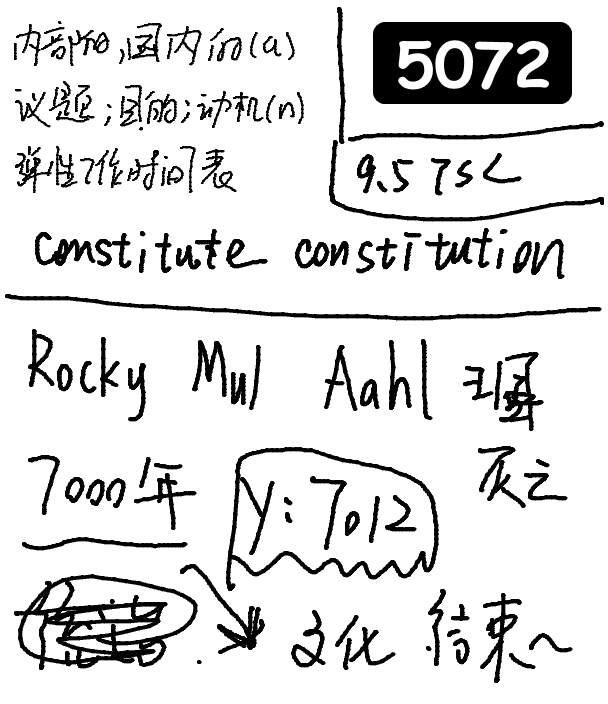 内部的,国内的(a)
5072
议题;目的;动机(n)
弹性工作时间表
9.5
constitute constitution
Rocky Mul Aahl
7000年
y:7012
灰之
文化 结束~